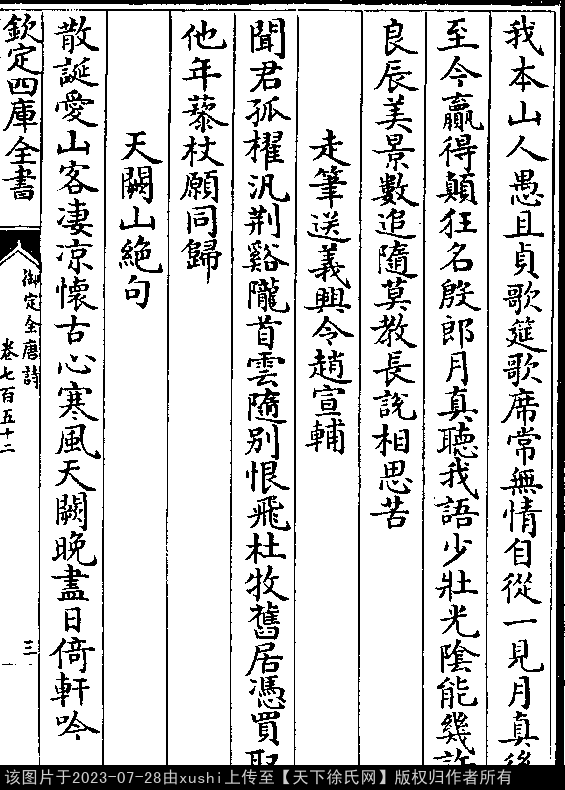 我本山人愚且貞歌筵歌席常無情自從一見月真後
至今贏得顛狂名殷郎月真聽我語少壯光陰能幾許
良辰美景數追隨莫教長說相思苦
走筆送義興令趙宣輔
聞君孤櫂汎荆谿隴首雲隨別恨飛杜牧舊居憑買取
他年藜杖願同歸
天闕山絶句
散誕愛山客淒涼懷古心寒風天闕晚盡日倚軒吟
欽定四庫全書
御定全唐詩
卷七百五十二
三
该图片于2023-07-28由xushi上传至【天下徐氏网】版权归作者所有